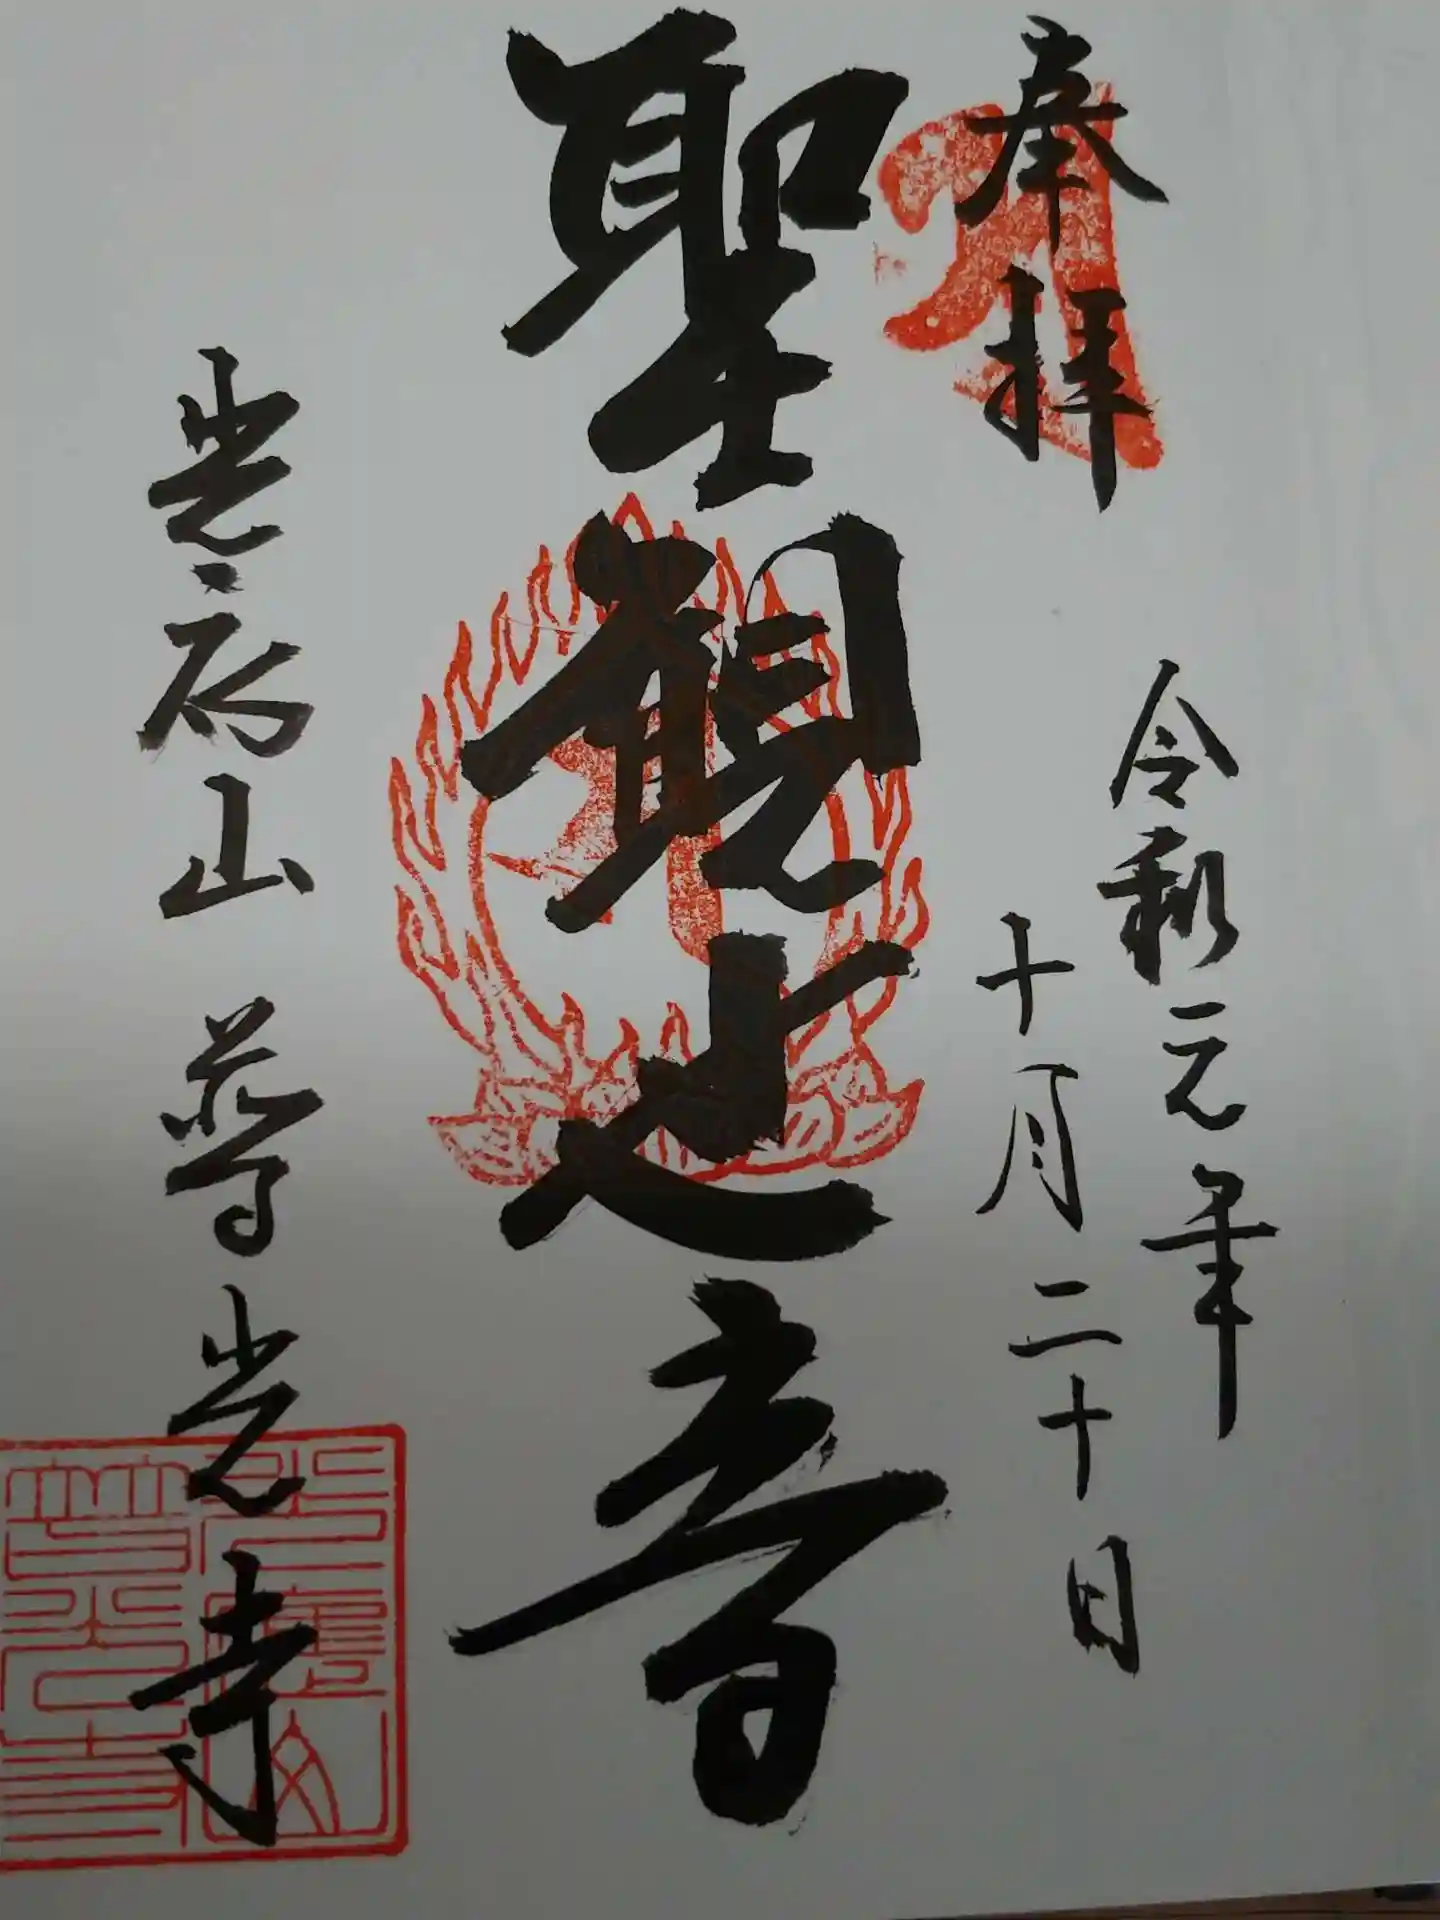 奉拝
令和元年
十月二十日
聖観世音
光山 普光寺